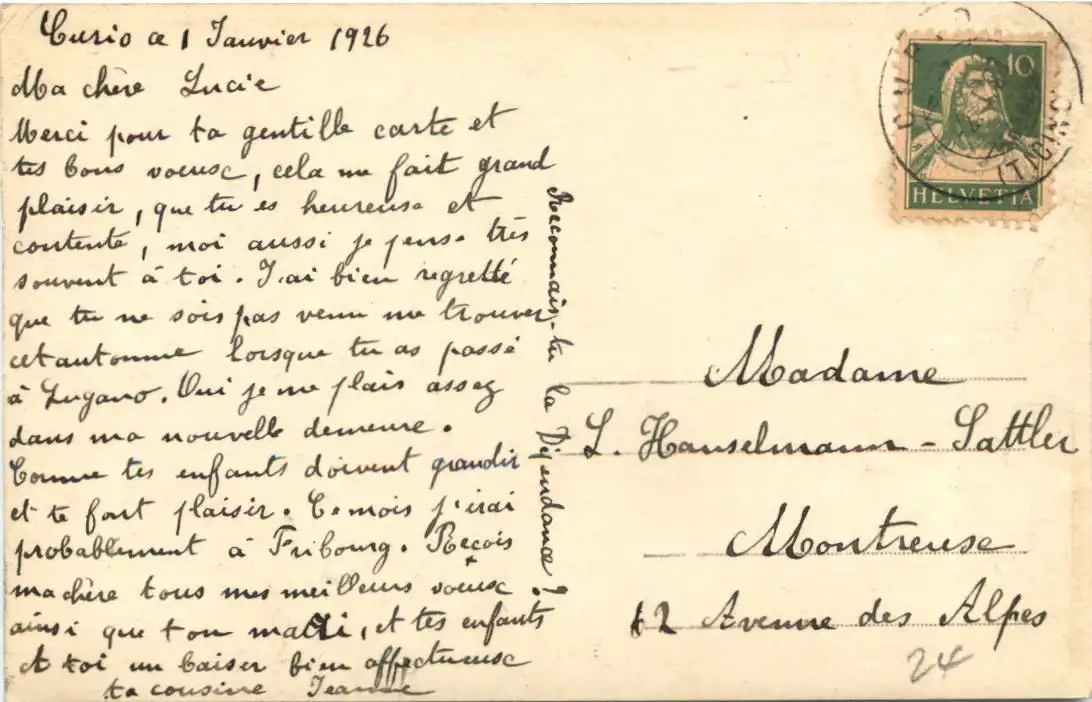 Curio ce 1 Janvier 1926
Ma chère Lucie
Merci pour ta gentille carte et
tes bons voeux, cela me fait grand
plaisir, que tu es heureuse et
contente, moi aussi je pense très
souvent à toi. J'ai bien regretté
que tu ne sois pas venu me trouver
cet automne lorsque tu as passé
à Lugano. Oui je me plais assez
dans ma nouvelle demeure.
Comme tes enfants doivent grandir
et te font plaisir. Ce mois j'irai
probablement à Fribourg. Reçois
ma chère tous mes meilleurs voeux
ainsi que ton mari, et tes enfants
et toi un baiser bien affectueux
ta cousine Jeanne
Reconnais-tu la Dépendance?
10
HELVETIA
(TICINO)
Madame
L. Hanselmann - Sattler
Montreux
12 Avenue des Alpes
24